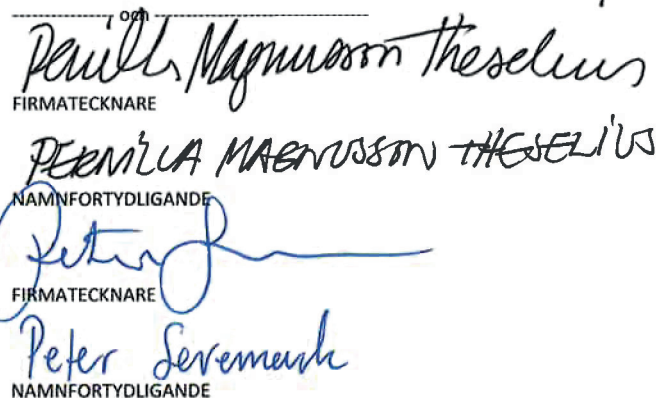 och
Pernilla Magnusson Theselius
FIRMATECKNARE
PERNILLA MAGNUSSON THESELIUS
NAMNFORTYDLIGANDE
Peter
FIRMATECKNARE
Peter Sevemark
NAMNFORTYDLIGANDE